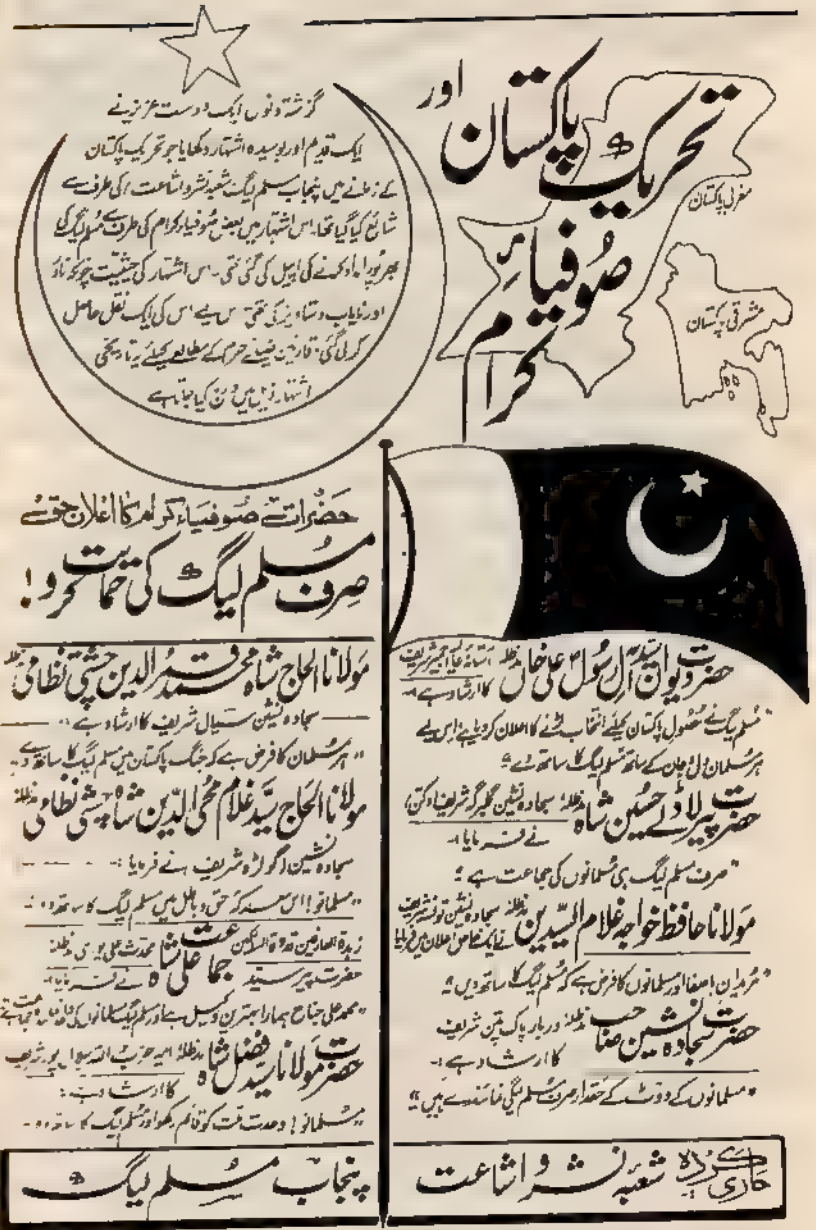 تحریک پاکستان اور
صوفیائے
کرام
مغربی پاکستان
مشرقی پاکستان
گزشتہ دنوں ایک دوست عزیز نے
ایک قدیم اور بوسیدہ اشتہار دکھایا جو تحریک پاکستان
کے زمانے میں پنجاب مسلم لیگ شعبہ نشر و اشاعت کی طرف سے
شائع کیا گیا تھا۔ اس اشتہار میں بعض صوفیاء کرام کی طرف سے مسلم لیگ کی
بھرپور امداد کرنے کی اپیل کی گئی تھی۔ اس اشتہار کی حیثیت چونکہ نادر
اور نایاب دستاویز کی تھی اس لیے اس کی ایک نقل حاصل
کر لی گئی۔ قارئین ضیائے حرم کے مطالعہ کیلئے یہ تاریخی
اشتہار ذیل میں کیا جاتا ہے
حضرات صوفیاء کرام کا اعلان حق ہے
صرف مسلم لیگ کی حمایت کرو!
حضرت دیوان سید آل رسول علی خاں مدظلہ آستانہ عالیہ اجمیر شریف
کا ارشاد ہے:۔
"مسلم لیگ نے حصول پاکستان کیلئے انتخاب لڑنے کا اعلان کر دیا ہے اس لیے
ہر مسلمان دل و جان کے ساتھ مسلم لیگ کا ساتھ دے"
حضرت پیر لاڈلے حسین شاہ مدظلہ سجادہ نشین گلبرگہ شریف (دکن)
نے فرمایا:۔
"صرف مسلم لیگ ہی مسلمانوں کی جماعت ہے"
مولانا حافظ خواجہ غلام السدیدین مدظلہ سجادہ نشین تونسہ شریف
نے ایک خاص اعلان میں فرمایا
"مریدان باصفا اور مسلمانوں کا فرض ہے کہ مسلم لیگ کا ساتھ دیں"
حضرت سجادہ نشین صاحب مدظلہ دربار پاک پتن شریف
کا ارشاد ہے:۔
"مسلمانوں کے ووٹ کے حقدار صرف مسلم لیگی نمائندے ہیں"
مولانا الحاج شاہ محمد قمر الدین چشتی نظامی مدظلہ
سجادہ نشین سیال شریف کا ارشاد ہے:۔
"ہر مسلمان کا فرض ہے کہ جنگ پاکستان میں مسلم لیگ کا ساتھ دے
مولانا الحاج سید غلام محی الدین شاہ چشتی نظامی مدظلہ
سجادہ نشین گولڑہ شریف نے فرمایا:۔
"مسلمانو! اس معرکہ حق و باطل میں مسلم لیگ کا ساتھ دو"
زبدۃ العارفین قدوۃ السالکین
حضرت پیر سید جماعت علی شاہ محدث علی پوری مدظلہ
نے فرمایا:۔
"محمد علی جناح ہمارا بہترین وکیل ہے اور مسلم لیگ مسلمانوں کی جماعت ہے
حضرت مولانا سید فضل شاہ مدظلہ امیر حزب اللہ جلال پور شریف
کا ارشاد ہے:
"مسلمانو! وحدت ملت کو قائم رکھو اور مسلم لیگ کا ساتھ دو"
جاری کردہ شعبہ نشر و اشاعت پنجاب مسلم لیگ